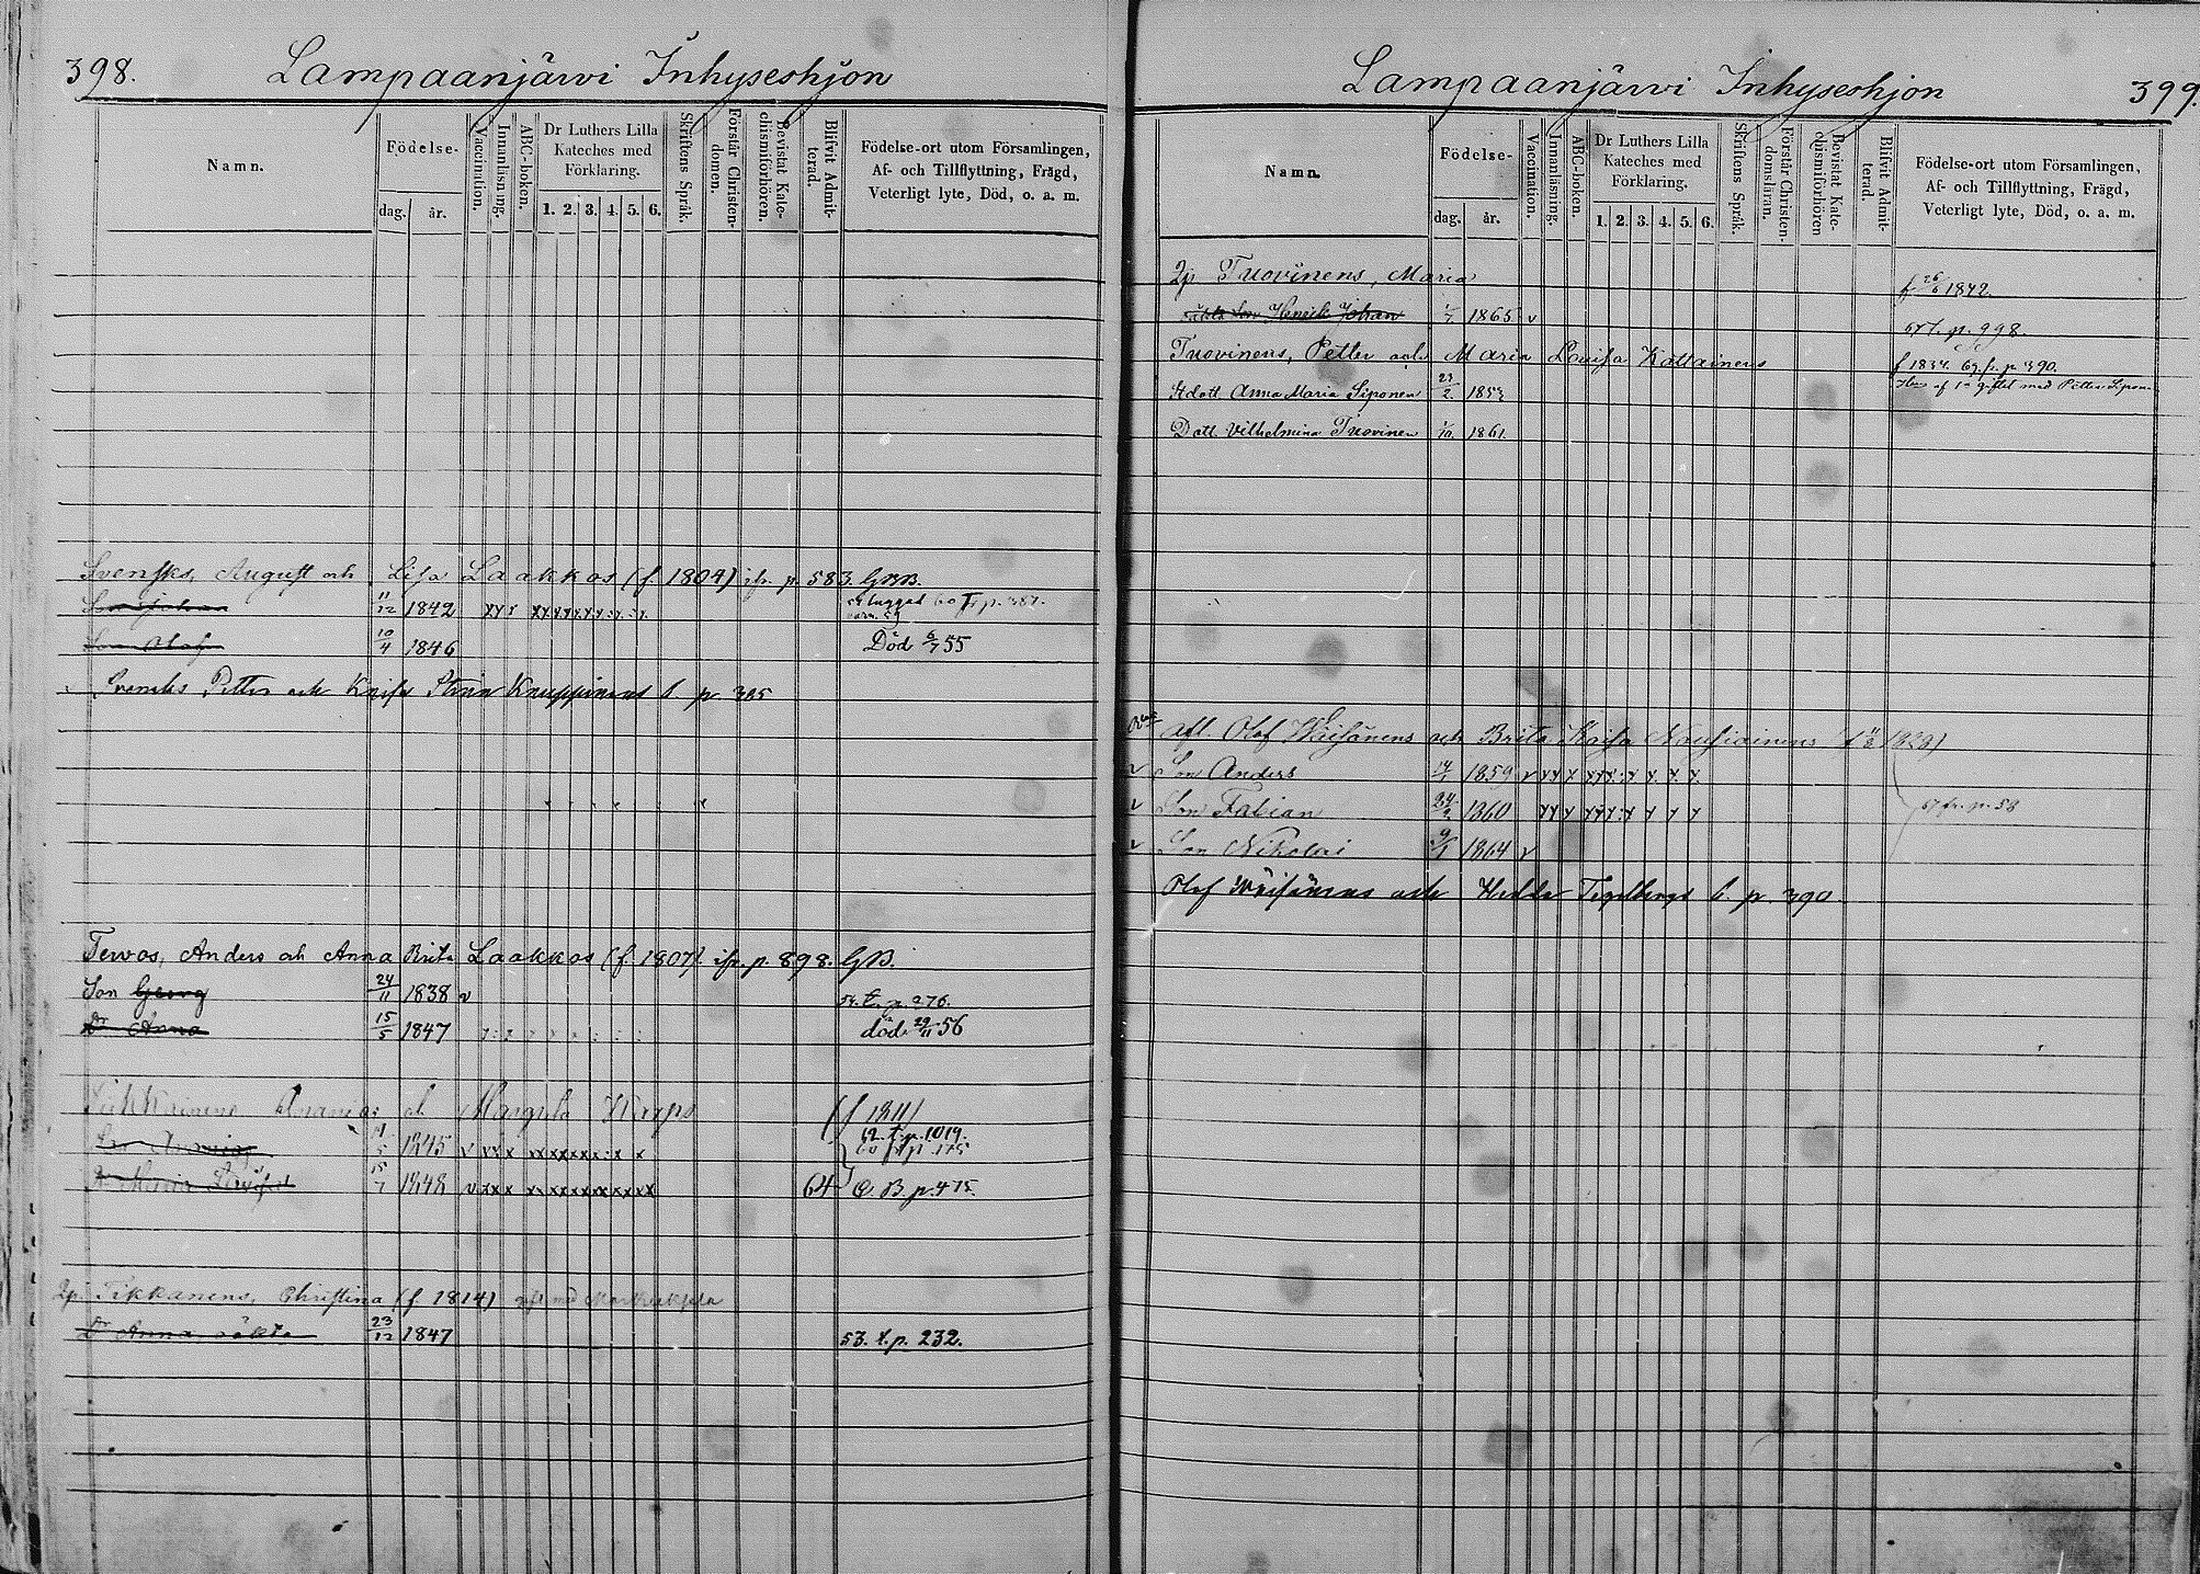 398. Lampaanjärwi Inhyseshjon
Namn.
Födelse-
dag. år.
Vaccination.
Innanläsning.
ABC-boken.
Dr Luthers Lilla Kateches med Förklaring.
1. 2. 3. 4. 5. 6.
Skriftens Språk.
Förstår Christen-domen.
Bevistat Kate-chismiförhören.
Blifvit Admit-terad.
Födelse-ort utom Församlingen,
Af- och Tillflyttning, Frägd,
Veterligt lyte, Död, o. a. m.
Svensks, August och Lisa Laakkos (f. 1804) jfr. p. 583. GBB.
Son Johan 11/12 1842 60 p. 387.
Son Olof 10/4 1846 Död 6/7 55
Svensks Petter och Kaisa Stina Knuppinens f. p. 385
Tervos, Anders och Anna Brita Laakkos (f. 1807). jfr. p. 898. GB.
Son Georg 24/11 1838 v 54. t. p. 276.
Dr Anna 15/5 1847 död 29/11 56
och Margeta (f 1811)
1845 v 62. t. p. 1019.
60 p. 175
Dr Maria 15/7 1848 v 64 C. B. p. 475.
Qp. Tikkanens, Christina (f 1814) gift med
Dr Anna oäkta 23/12 1847 53. t. p. 232.
Lampaanjärwi Inhyseshjon 399.
Namn.
Födelse-
dag. år.
Vaccination.
Innanläsning.
ABC-boken.
Dr Luthers Lilla Kateches med Förklaring.
1. 2. 3. 4. 5. 6.
Skriftens Språk.
Förstår Christen-domsläran.
Bevistat Kate-chismiförhören
Blifvit Admit-terad.
Födelse-ort utom Församlingen,
Af- och Tillflyttning, Frägd,
Veterligt lyte, Död, o. a. m.
Qp. Tuovinens, Maria f 26/6 1842.
oäkta son Henrik Johan 1/7 1865 v 67 t. p. 998.
Tuovinens, Petter och Maria Lovisa Kattainens f 1834. 69. fr. p. 390.
Stdott Anna Maria Siponen 23/2 1853 af 1a giftet med Petter Siponen
Dott Vilhelmina Tuovinen 1/10 1861.
Afl. Olof Wäisänens och Brita Kaisa Nousiainens
v Son Anders 14/1 1859 v
v Son Fabian 24/2 1860 67 fr. p. 58
v Son Nikolai 9/1 1864 v
Olof Wäisänens och Hedda Tegelbergs f. p. 390.